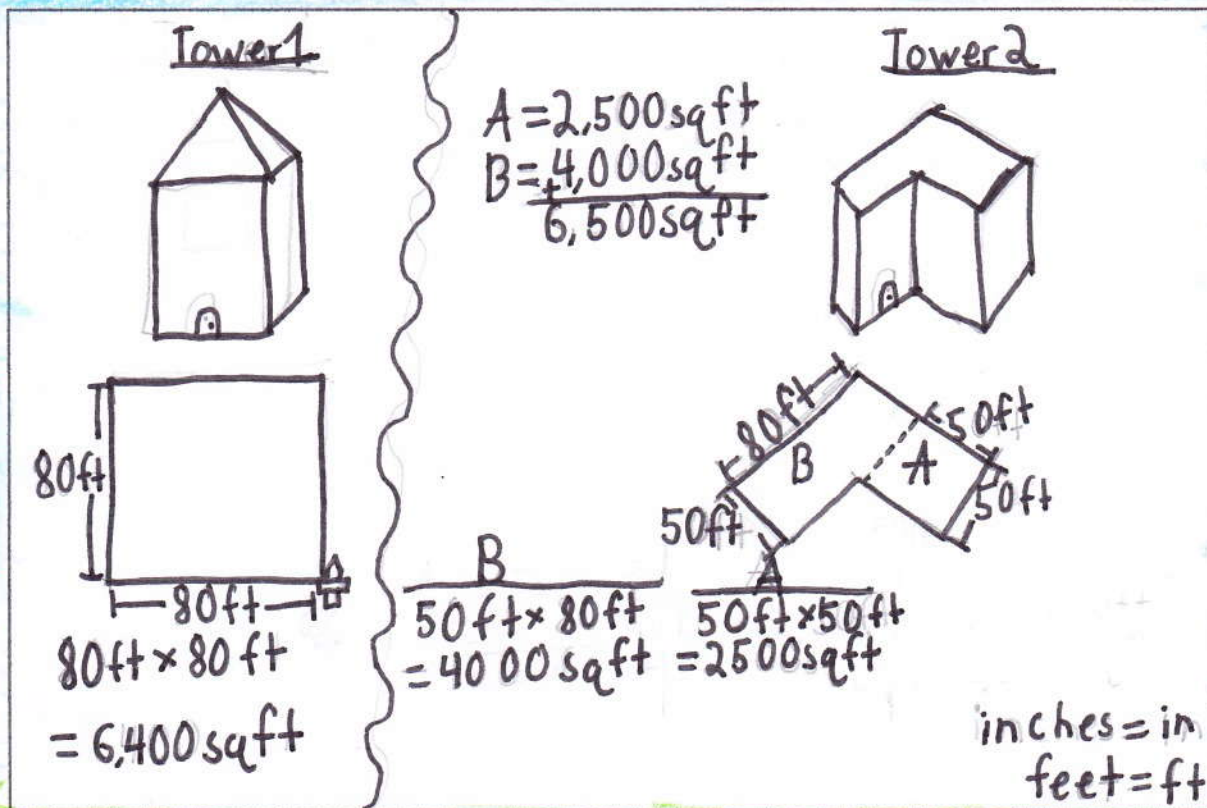 Tower 1
80ft
80ft
80ft × 80ft
= 6,400 sq ft
A = 2,500 sq ft
B = +4,000 sq ft
6,500 sq ft
Tower 2
80ft
B
A
50ft
50ft
50ft
B
50ft × 80ft
= 4000 sq ft
A
50ft × 50ft
= 2500 sq ft
inches = in
feet = ft